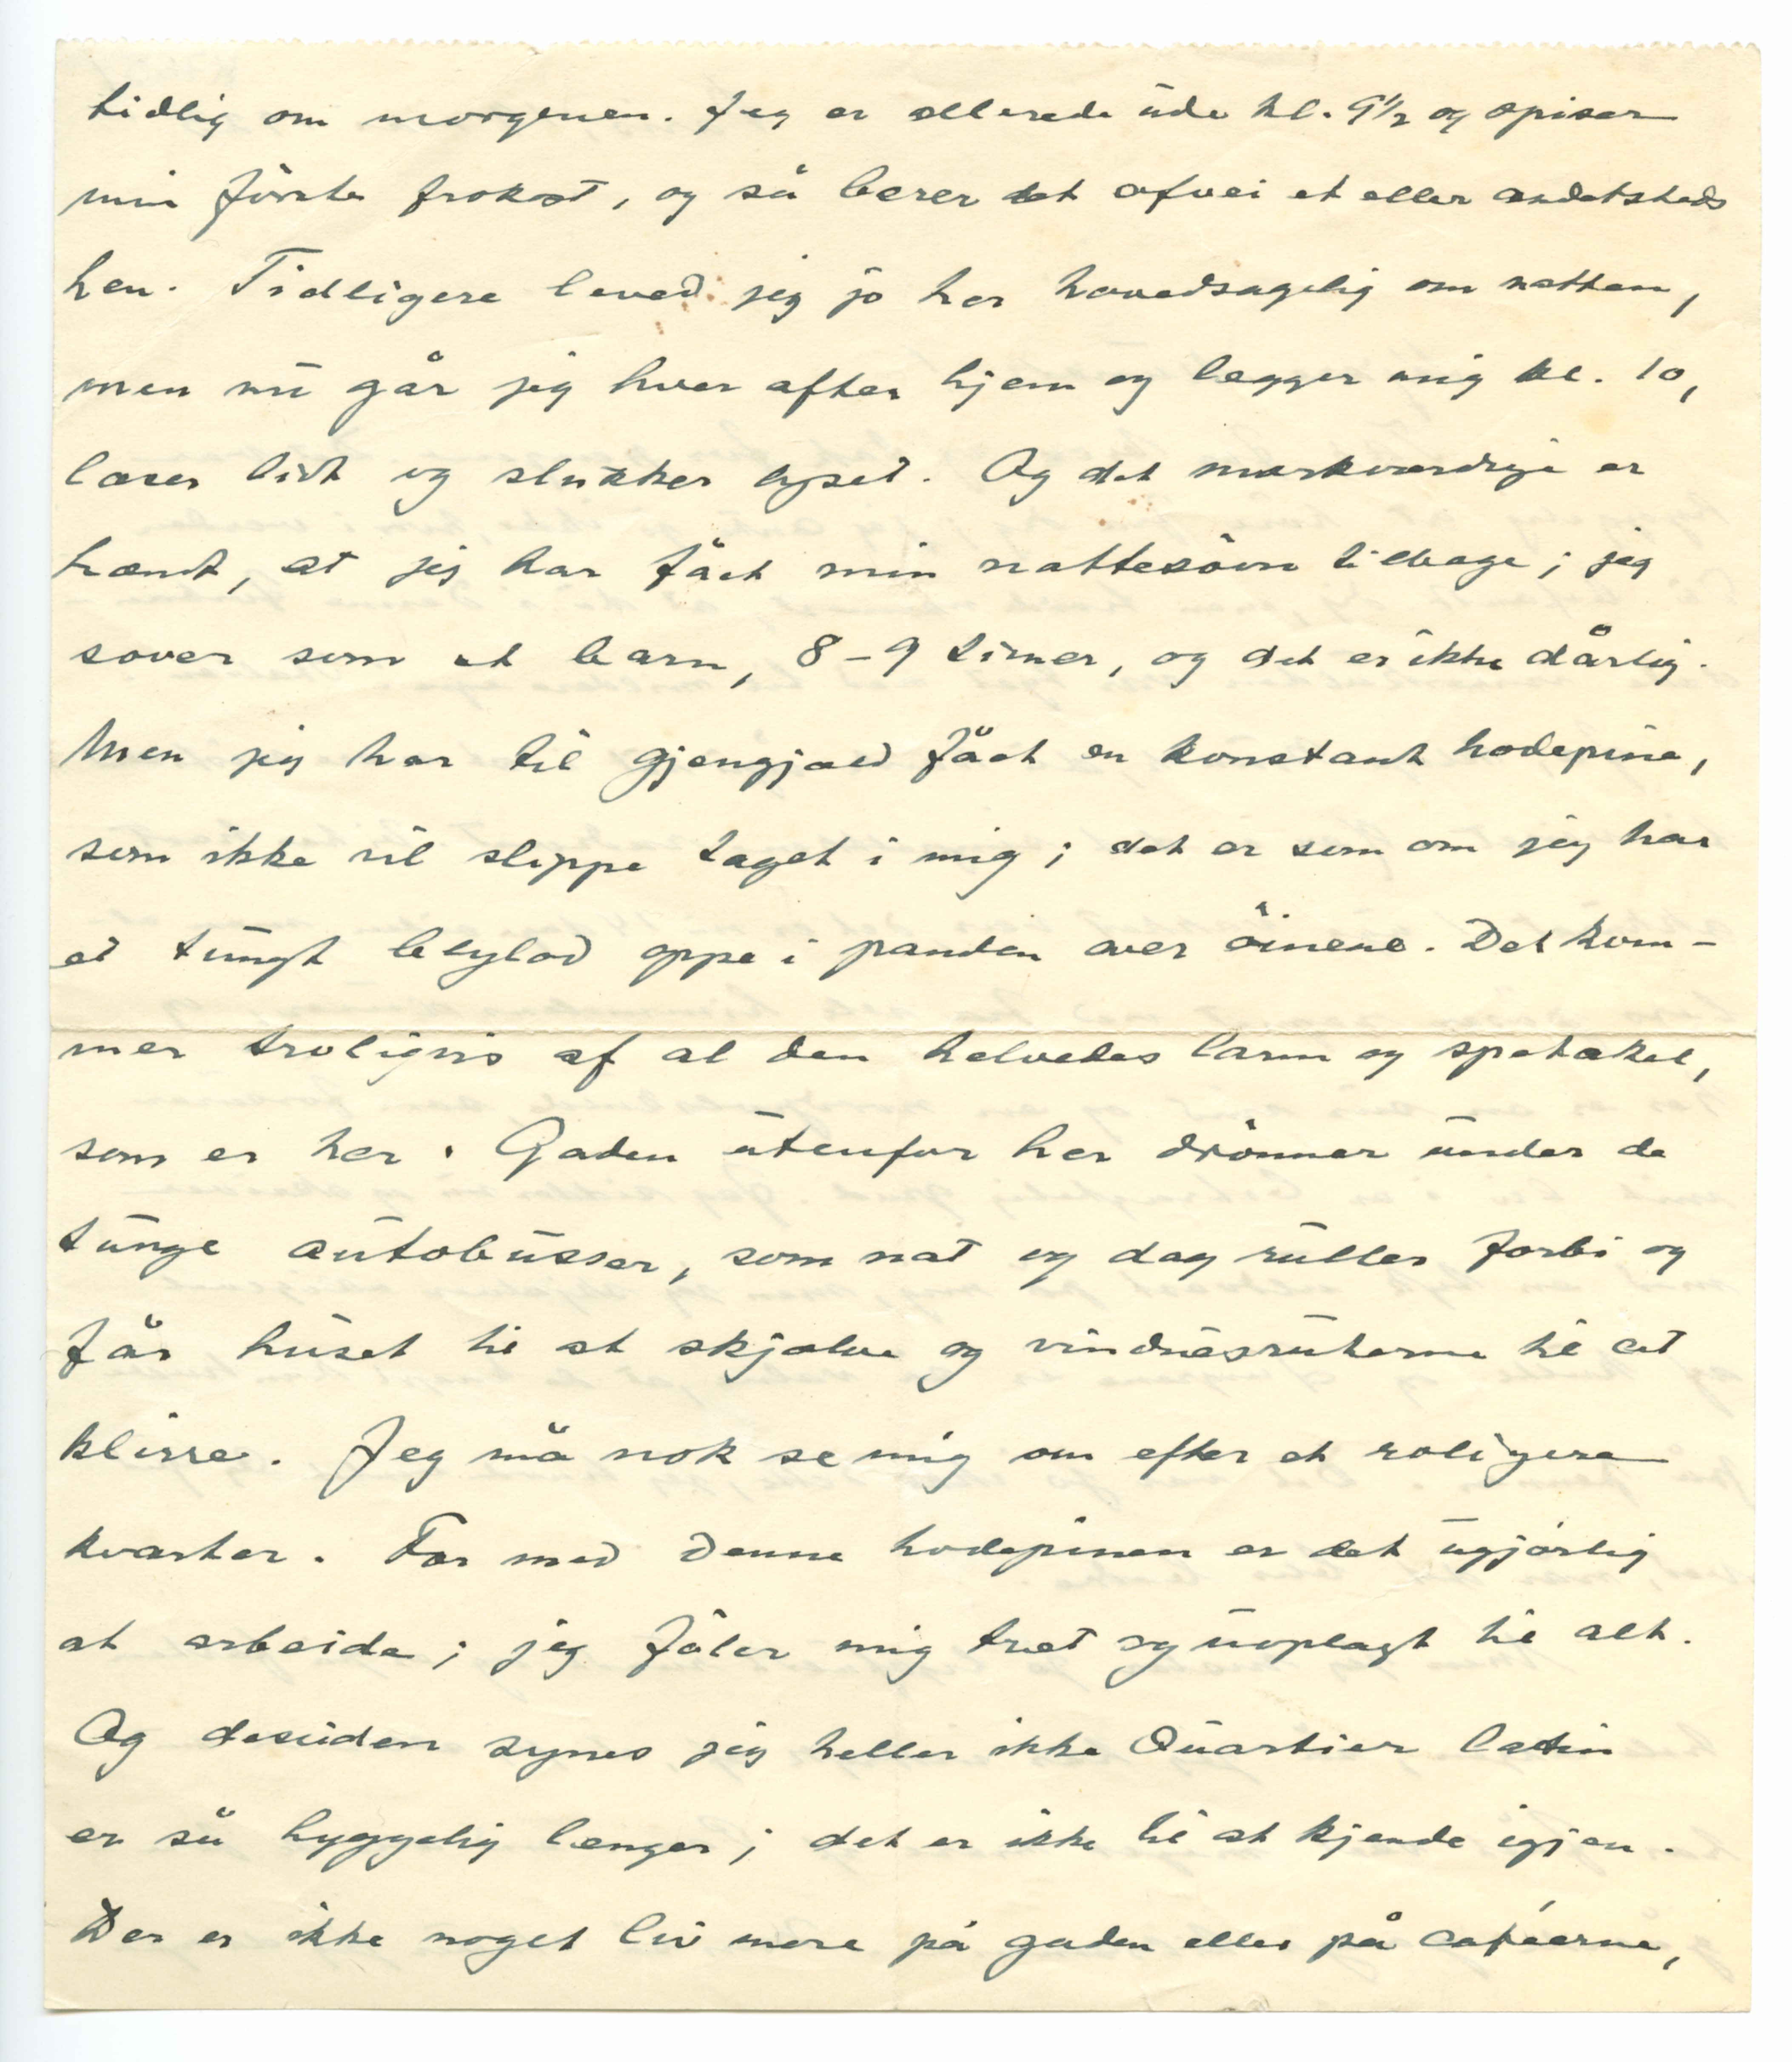 tidlig om morgenen. Jeg er allerede ude kl. 9½ og spiser
min første frokost, og så bærer det afvei et eller andetsteds
hen. Tidligere leved jeg jo her hovedsagelig om natten,
men nu går jeg hver aften hjem og lægger mig kl. 10,
læser lidt og slukker lyset. Og det mærkværdige er
hændt, at jeg har fåt min nattesøvn tilbage; jeg
sover som et barn, 8-9 timer, og det er ikke dårlig.
Men jeg har til gjengjæld fåt en konstant hodepine,
som ikke vil slippe taget i mig; det er som om jeg har
et tungt blylod oppe i panden over øinene. Det kom-
mer troligvis af al den helvedes larm og spetakel,
som er her. Gaden utenfor her drønner under de
tunge autobusser, som nat og dag ruller forbi og
får huset til at skjælve og vindusruterne til at
klirre. Jeg må nok se mig om efter et roligere
kvarter. For med denne hodepinen er det ugjørlig
at arbeide; jeg føler mig træt og uoplagt til alt.
Og desuden synes jeg heller ikke Quartier latin
er så hyggelig længer; det er ikke til at kjende igjen.
Der er ikke noget liv mere på gaden eller på caféerne,